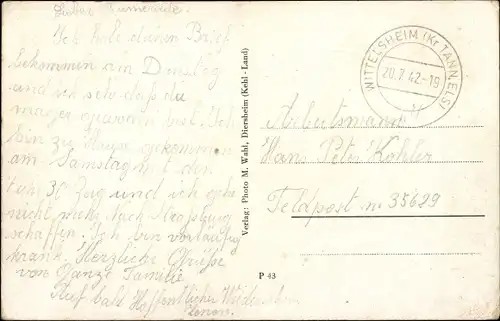 Ich hab deinen Brief
bekommen am Dinstag
und ich seh daß du
mager geworden bist. Ich
bin zu Hause gekommen
am Samstag mit den
30 Zug und ich gehe
nicht mehr nach Straßburg
schaffen. Ich bin vorläufig
krank. Herzliche Grüße
von Ganze Familie
Auf bald Hoffentlich Wiedersehen
WITTELSHEIM (Kr. TANN, ELS)
20.7.42-19
Arbeitsmann
Hans Peter Kohler
Feldpost nr 35629
Verlag: Photo M. Wahl, Diersheim (Kehl-Land)
P 43